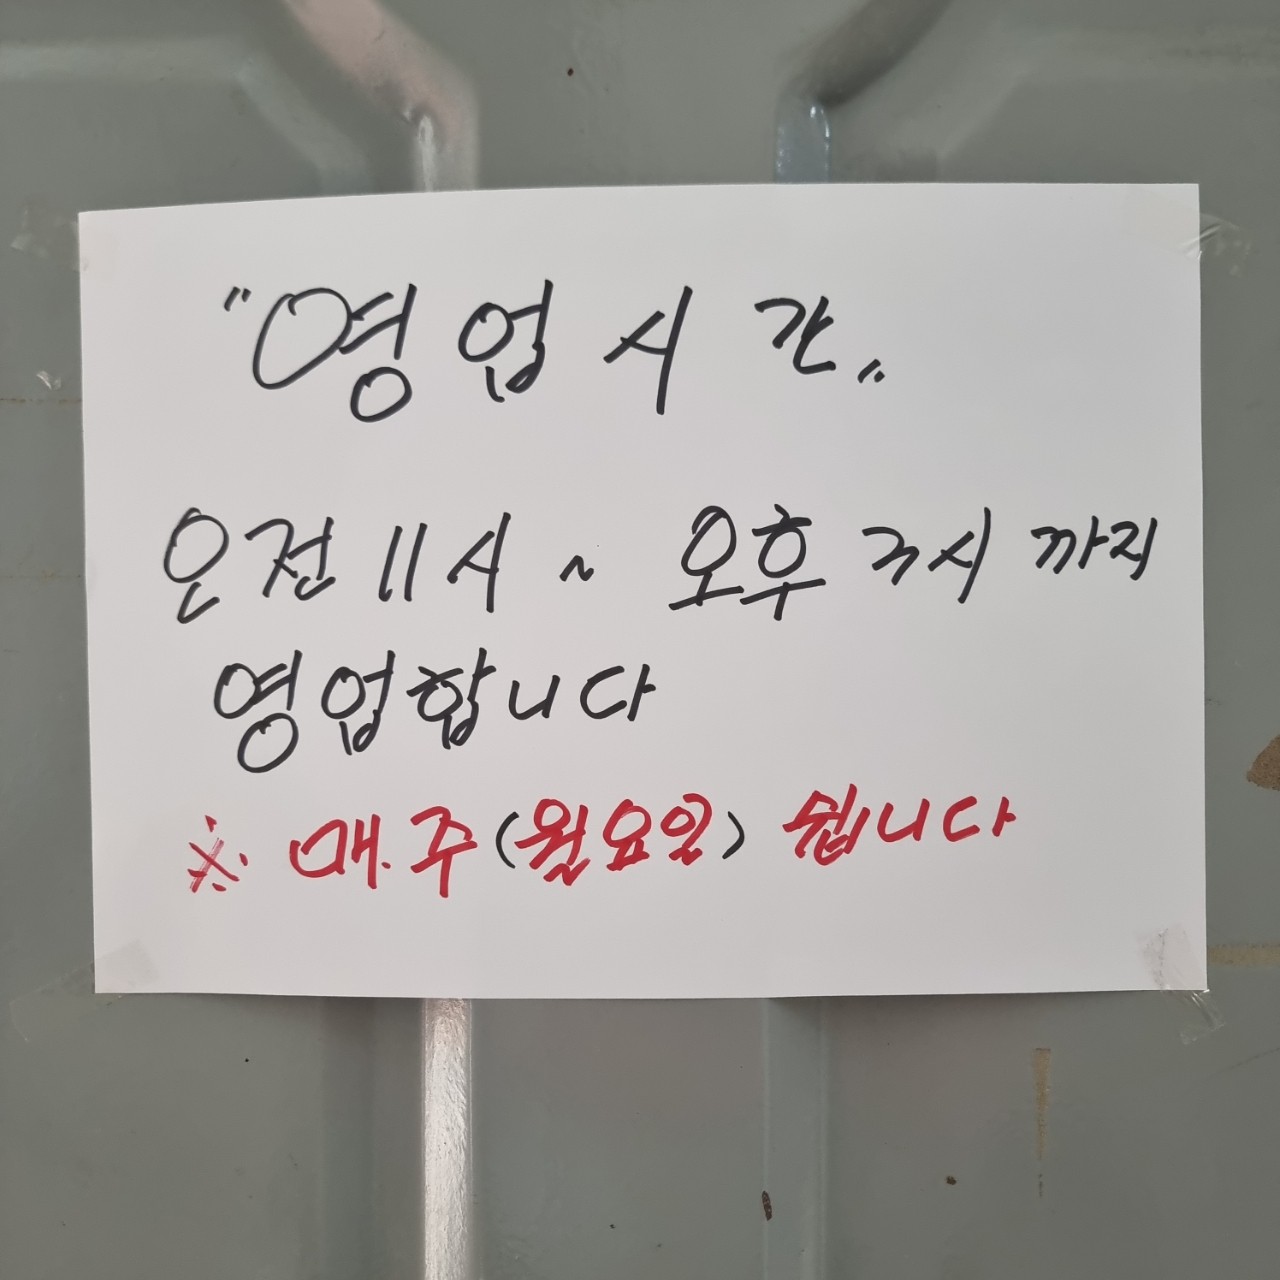 "영업시간"
오전 11시 ~ 오후 3시 까지
영업합니다
※ 매.주 (월요일) 쉽니다